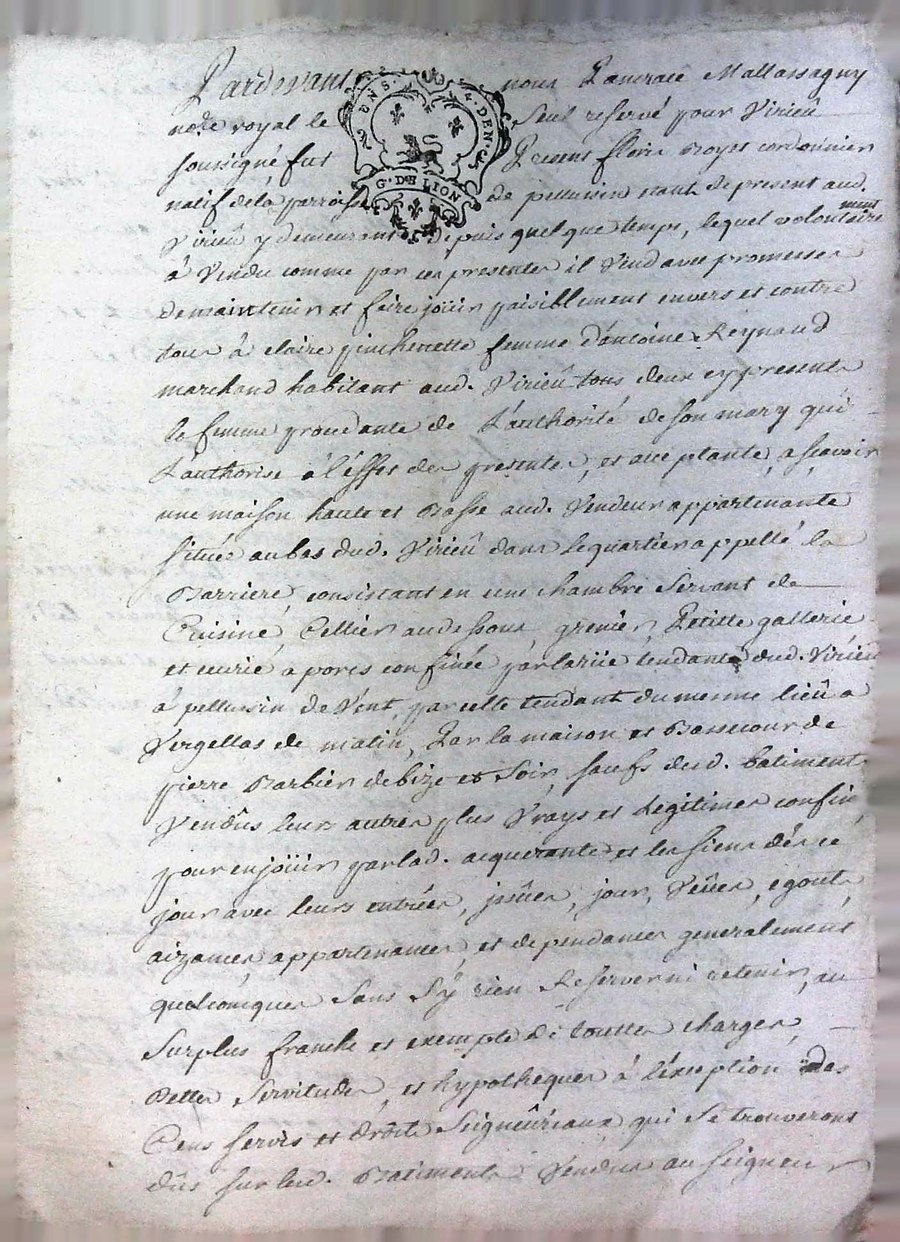 Pardevant nous Pancrace Mallassagny
no.re royal le Seul reservé pour Virieû
soussigné fut Present fleurie Royet cordonnier
natif de la parroisse de pellussin etant de present aud.
Virieû y demeurant depuis quelque temps, lequel volontairement
à Vendu comme par ces presentes il Vend avec promesses
de maintenir et faire joüir paisiblement envers et contre
tous à claire pinchenette femme d'antoine Reynaud
marchand habitant aud. Virieû tous deux cy presents
la femme procedante de L'authorité de son mary qui
L'authorise à l'effet des presentes, et acceptante, a sçavoir
une maison haute et Basse aud. Vendeur appartenante
située au bas dud. Virieû dans le quartier appellé la
Barriere, consistant en une chambre Servant de
Cuisine, Cellier au dessous, grenier, Petitte gallerie
et ecurie a porcs confinée par la rüe tendante dud. Virieu
à pellussin de Vent, par celle tendant du meme lieû a
Vergellas de matin, Par la maison et Bassecour de
pierre Barbier de bize et Soir, saufs dud. batiment
Vendûs leurs autres plus Vrays et Legitimes confins
pour en joüir par lad. acquerante et les siens dés ce
jour avec leurs entrées, jssües, jour, Veües, egouts
aizances, appartenances, et dependances generalement
quelconques sans S'y rien Reserver ni retenir, au
Surplus franche et exempte de touttes charges,
Dettes Servitudes, et hypotheques à l'exception des
Cens servis et droits Seigneûriaux qui se trouveront
dûs sur led. Batiments Vendus au Seigneur